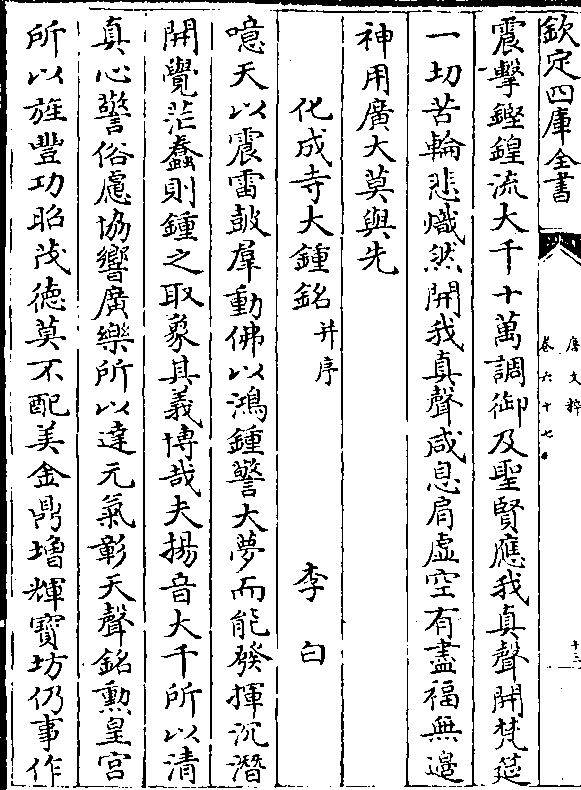 欽定四庫全書
唐文粹
卷六十七
十三
震擊鏗鍠流大千十萬調御及聖賢應我真聲開梵筵
一切苦輪悲熾然開我真聲咸息肩虛空有盡福無邊
神用廣大莫與先
化成寺大鍾銘并序 李白
噫天以震雷鼓羣動佛以鴻鍾警大夢而能發揮沉潛
開覺茫蠢則鍾之取象其義博哉夫揚音大千所以清
真心警俗慮協響廣樂所以達元氣彰天聲銘勲皇宮
所以旌豐功昭茂德莫不配美金鼎增輝寶坊仍事作